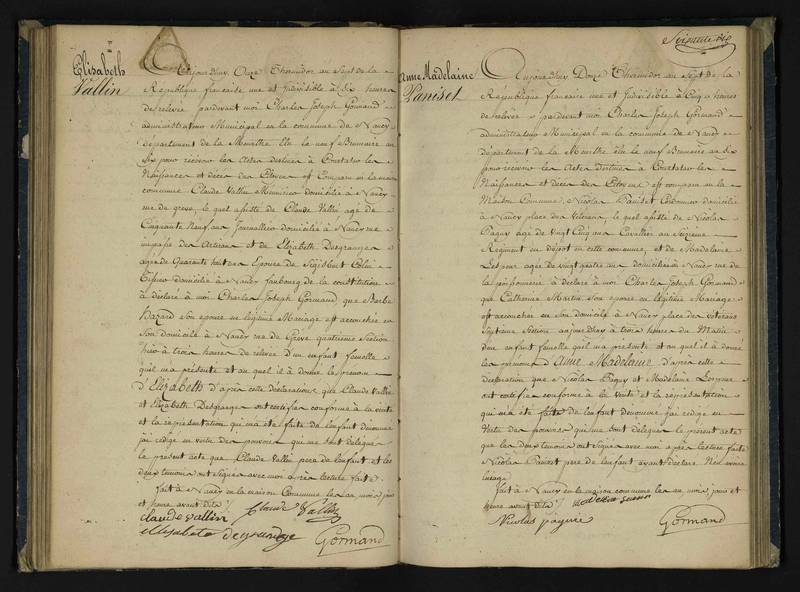 Elisabeth
Vallin
Aujourd'huy Onze Thermidor an Sept de la
République française une et Indivisible à Six heures
de relevée pardevant moi Charles Joseph Gormand
administrateur Municipal en la commune de Nancy
département de la Meurthe élu le neuf Brumaire an
Six pour recevoir les Actes destinés à Constater les
Naissances et décès des Citoyens est Comparu en la maison
commune Claude Vallin domicilié à Nancy
rue de greve, le quel assisté de Claude Vallin agé de
Cinquante Neuf ans Journallier domicilié à Nancy rue
des Artisans et de Elizabeth Desgranges
agée de Quarante huit ans Epouse de Sigisbert
domicilié à Nancy faubourg de la constitution
à déclaré à moi Charles Joseph Gormand, que Barbe
Hazard Son epouse en légitime Mariage est accouchée en
Son domicile à Nancy rue de Grève quatrieme Section
hier à trois heures de relevée d'un enfant femelle
qu'il m'a présenté et au quel il à donné le prenom
d'Elizabeth d'après cette déclaration que Claude Vallin
et Elizabeth Desgrange ont certifiée conforme à la verité
et la représentation qui m'a été faite de l'enfant dénommé
j'ai rédigé en vertu des pouvoirs qui me sont délégués
le présent acte que Claude Vallin pere de l'enfant et les
deux temoins ont signés avec moi après lecture faite
fait à Nancy en la maison Commune les an mois jour
et heure avant dits
claude vallin Claude Vallin
elisabete degrange Gormand
Anne Madelaine
Paniset
Aujourd'huy Douze Thermidor an Sept de la
République française une et Indivisible à Cinq heures
de relevée pardevant moi Charles Joseph Gormand
administrateur Municipal en la commune de Nancy
Département de la Meurthe élu le neuf Brumaire an
Six pour recevoir les Actes destinés à Constater les
Naissances et décès des Citoyens est comparu en la
Maison Commune, Nicolas Paniset Cordonnier domicilié
à Nancy place des Veterans, le quel assisté de Nicolas
Paguy agé de vingt Cinq ans Cavallier au Seizieme
Régiment en dépôt en cette commune, et de Madelaine
agée de vingt quatre ans domiciliée à Nancy rue de
la poissonnerie à déclaré à moi Charles Joseph Gormand
que Catherine Martin Son epouse en légitime Mariage
est accouchée en Son domicile à Nancy place des vétérans
Septieme Section aujourd'huy à trois heures du Matin
d'un enfant femelle qu'il m'a présenté et au quel il à donné
les prénoms d'Anne Madelaine d'après cette
déclaration que Nicolas Paguy et Madelaine
ont certifiée conforme à la Verité et la représentation
qui m'a été faite de l'enfant dénommé j'ai rédigé en
Vertu des pouvoirs qui me sont délégués le présent acte
que les deux temoins ont Signés avec moi après lecture faite
Nicolas Paniset pere de l'enfant ayant déclaré N'en avoir
usage
fait à Nancy en la maison commune les an mois jour et
heure avant dits
Nicolas paguie Gormand